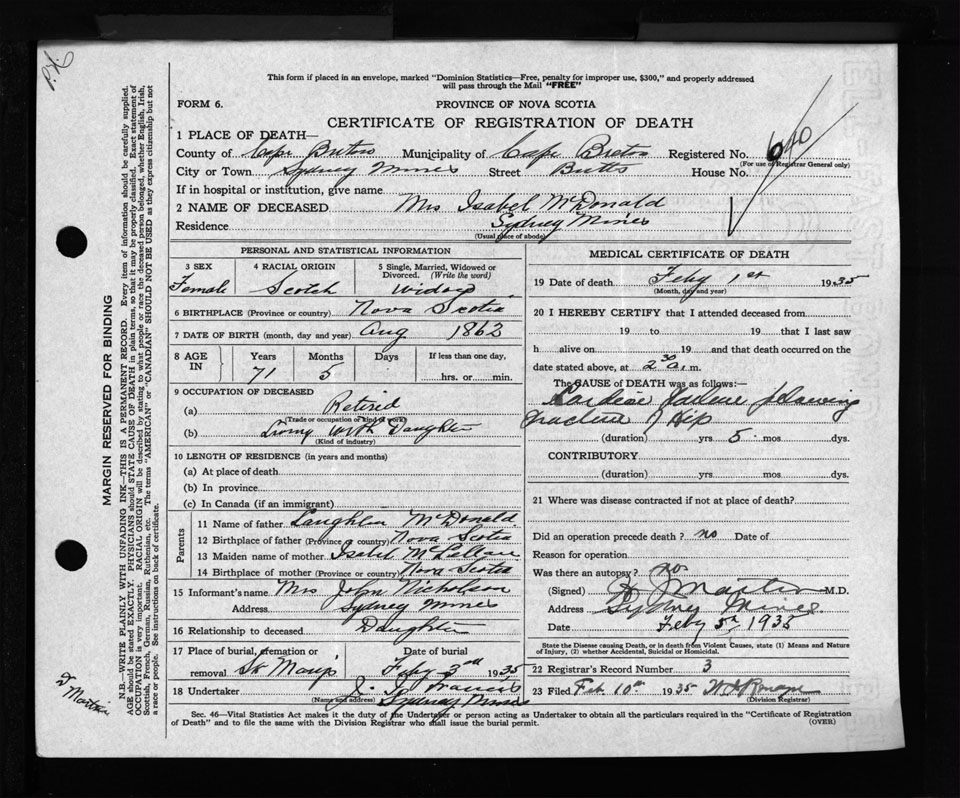 This form if placed in an envelope, marked "Dominion Statistics—Free, penalty for improper use, $300," and properly addressed
will pass through the Mail "FREE"
FORM 6.
PROVINCE OF NOVA SCOTIA
CERTIFICATE OF REGISTRATION OF DEATH
1 PLACE OF DEATH—
County of Cape Breton Municipality of Cape Breton Registered No. 640
(For use of Registrar General only)
City or Town Sydney Mines Street Butts House No.
If in hospital or institution, give name
2 NAME OF DECEASED Mrs Isabel McDonald
Residence Sydney Mines
(Usual place of abode)
PERSONAL AND STATISTICAL INFORMATION
3 SEX 4 RACIAL ORIGIN 5 Single, Married, Widowed or
Divorced. (Write the word)
Female Scotch Widow
6 BIRTHPLACE (Province or country) Nova Scotia
7 DATE OF BIRTH (month, day and year) Aug 1863
8 AGE IN Years Months Days If less than one day,
71 5 hrs. or min.
9 OCCUPATION OF DECEASED
(a) Retired
(Trade or occupation or kind of work)
(b) Living With Daughter
(Kind of industry)
10 LENGTH OF RESIDENCE (in years and months)
(a) At place of death
(b) In province
(c) In Canada (if an immigrant)
Parents
11 Name of father Laughlin McDonald
12 Birthplace of father (Province or country) Nova Scotia
13 Maiden name of mother Isabel McLellan
14 Birthplace of mother (Province or country) Nova Scotia
15 Informant's name Mrs John Nicholson
Address Sydney Mines
16 Relationship to deceased Daughter
17 Place of burial, cremation or Date of burial
removal St Mary's Feby 3rd 1935
18 Undertaker Francis
(Name and address) Sydney Mines
MEDICAL CERTIFICATE OF DEATH
19 Date of death Feby 1st 1935
(Month, day and year)
20 I HEREBY CERTIFY that I attended deceased from
19 to 19 that I last saw
h alive on 19 and that death occurred on the
date stated above, at 2 30 a.m.
The CAUSE OF DEATH was as follows:—
Cardiac failure following
fracture of Hip
(duration) yrs 5 mos dys.
CONTRIBUTORY
(duration) yrs mos dys.
21 Where was disease contracted if not at place of death?
Did an operation precede death? no Date of
Reason for operation
Was there an autopsy? no
(Signed) Martin M.D.
Address Sydney Mines
Date Feby 5th 1935
State the Disease causing Death, or in death from Violent Causes, state (1) Means and Nature
of Injury, (2) whether Accidental, Suicidal or Homicidal.
22 Registrar's Record Number 3
23 Filed Feb 10th 1935
(Division Registrar)
Sec. 46—Vital Statistics Act makes it the duty of the Undertaker or person acting as Undertaker to obtain all the particulars required in the "Certificate of Registration
of Death" and to file the same with the Division Registrar who shall issue the burial permit.
(OVER)
MARGIN RESERVED FOR BINDING
N.B.—WRITE PLAINLY WITH UNFADING INK—THIS IS A PERMANENT RECORD. Every item of information should be carefully supplied.
AGE should be stated EXACTLY. PHYSICIANS should STATE CAUSE OF DEATH in plain terms, so that it may be properly classified. Exact statement of
OCCUPATION is very important. RACIAL ORIGIN will be described by stating to what people or race the deceased person belonged, whether English, Irish,
Scottish, French, German, Russian, Ruthenian, etc. The terms "AMERICAN" or "CANADIAN" SHOULD NOT BE USED as they express citizenship but not
a race or people. See instructions on back of certificate.
Martin